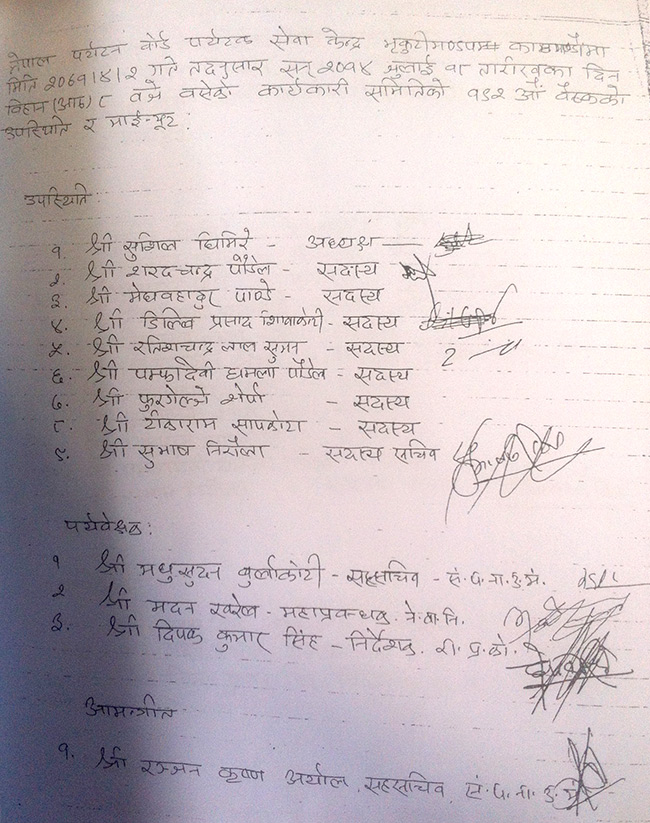 नेपाल पर्यटन वोर्ड पर्यटक सेवा केन्द्र भृकुटीमण्डपमा काठमाण्डौमा
मिति २०७१।४।२ गते तदनुसार सन् २०१४ जुलाई १८ तारीखका दिन
विहान (आठ) ८ वजे वसेको कार्यकारी समितिको १९२ औं वैठकको
उपस्थिति र माईन्यूट:
उपस्थिति:
१. श्री सुशिल घिमिरे - अध्यक्ष -
२. श्री शरदचन्द्र पौडेल - सदस्य
३. श्री मेघवहादुर पाण्डे - सदस्य
४. श्री डिल्लि प्रसाद शिवाकोटी - सदस्य
५. श्री चन्द्र लाल सुमन - सदस्य
६. श्री पम्फादेवी धमला पौडेल - सदस्य
७. श्री फुरगेल्जे शेर्पा - सदस्य
८. श्री टीकाराम सापकोटा - सदस्य
९. श्री सुभाष निरौला - सदस्य सचिव
पर्यवेक्षक:
१ श्री मधुसुदन वुर्लाकोटी - सहसचिव - सं. प. ना. उ. मं.
२ श्री मदन खरेल - महाप्रवन्धक. ने. वा. नि.
३. श्री दिपक कुमार सिंह - निर्देशक. रा. प्र. को.
आमन्त्रीत
१. श्री रञ्जन कृष्ण अर्याल, सहसचिव, सं. प. ना. उ. मं.